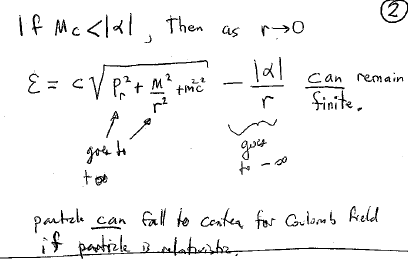 ②
If Mc<|α|, Then as r→0
ℰ = c√(Pr² + M²/r² + m²c²) − |α|/r can remain finite.
goes to +∞
goes to −∞
particle can fall to center for Coulomb field
if particle is relativistic.